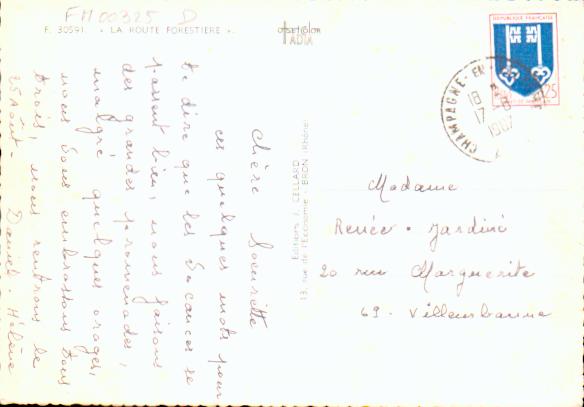 FH 00325 D
F. 30591. « LA ROUTE FORESTIÈRE ».
OFFSET COLOR
ADIA
REPUBLIQUE FRANÇAISE
CHAMPAGNE-EN-
18 H
17 - 8
1967
Chère Soeurette
ces quelques mots pour
te dire que les vacances se
passent bien, nous faisons
des grandes promenades,
malgré quelques orages,
nous vous embrassons tous
trois, nous rentrons le
25 Août - Daniel - Hélène
Editions J. CELLARD
13, rue de l'Economie - BRON (Rhône)
Madame
Renée Jardini
20 rue Marguerite
69 - Villeurbanne